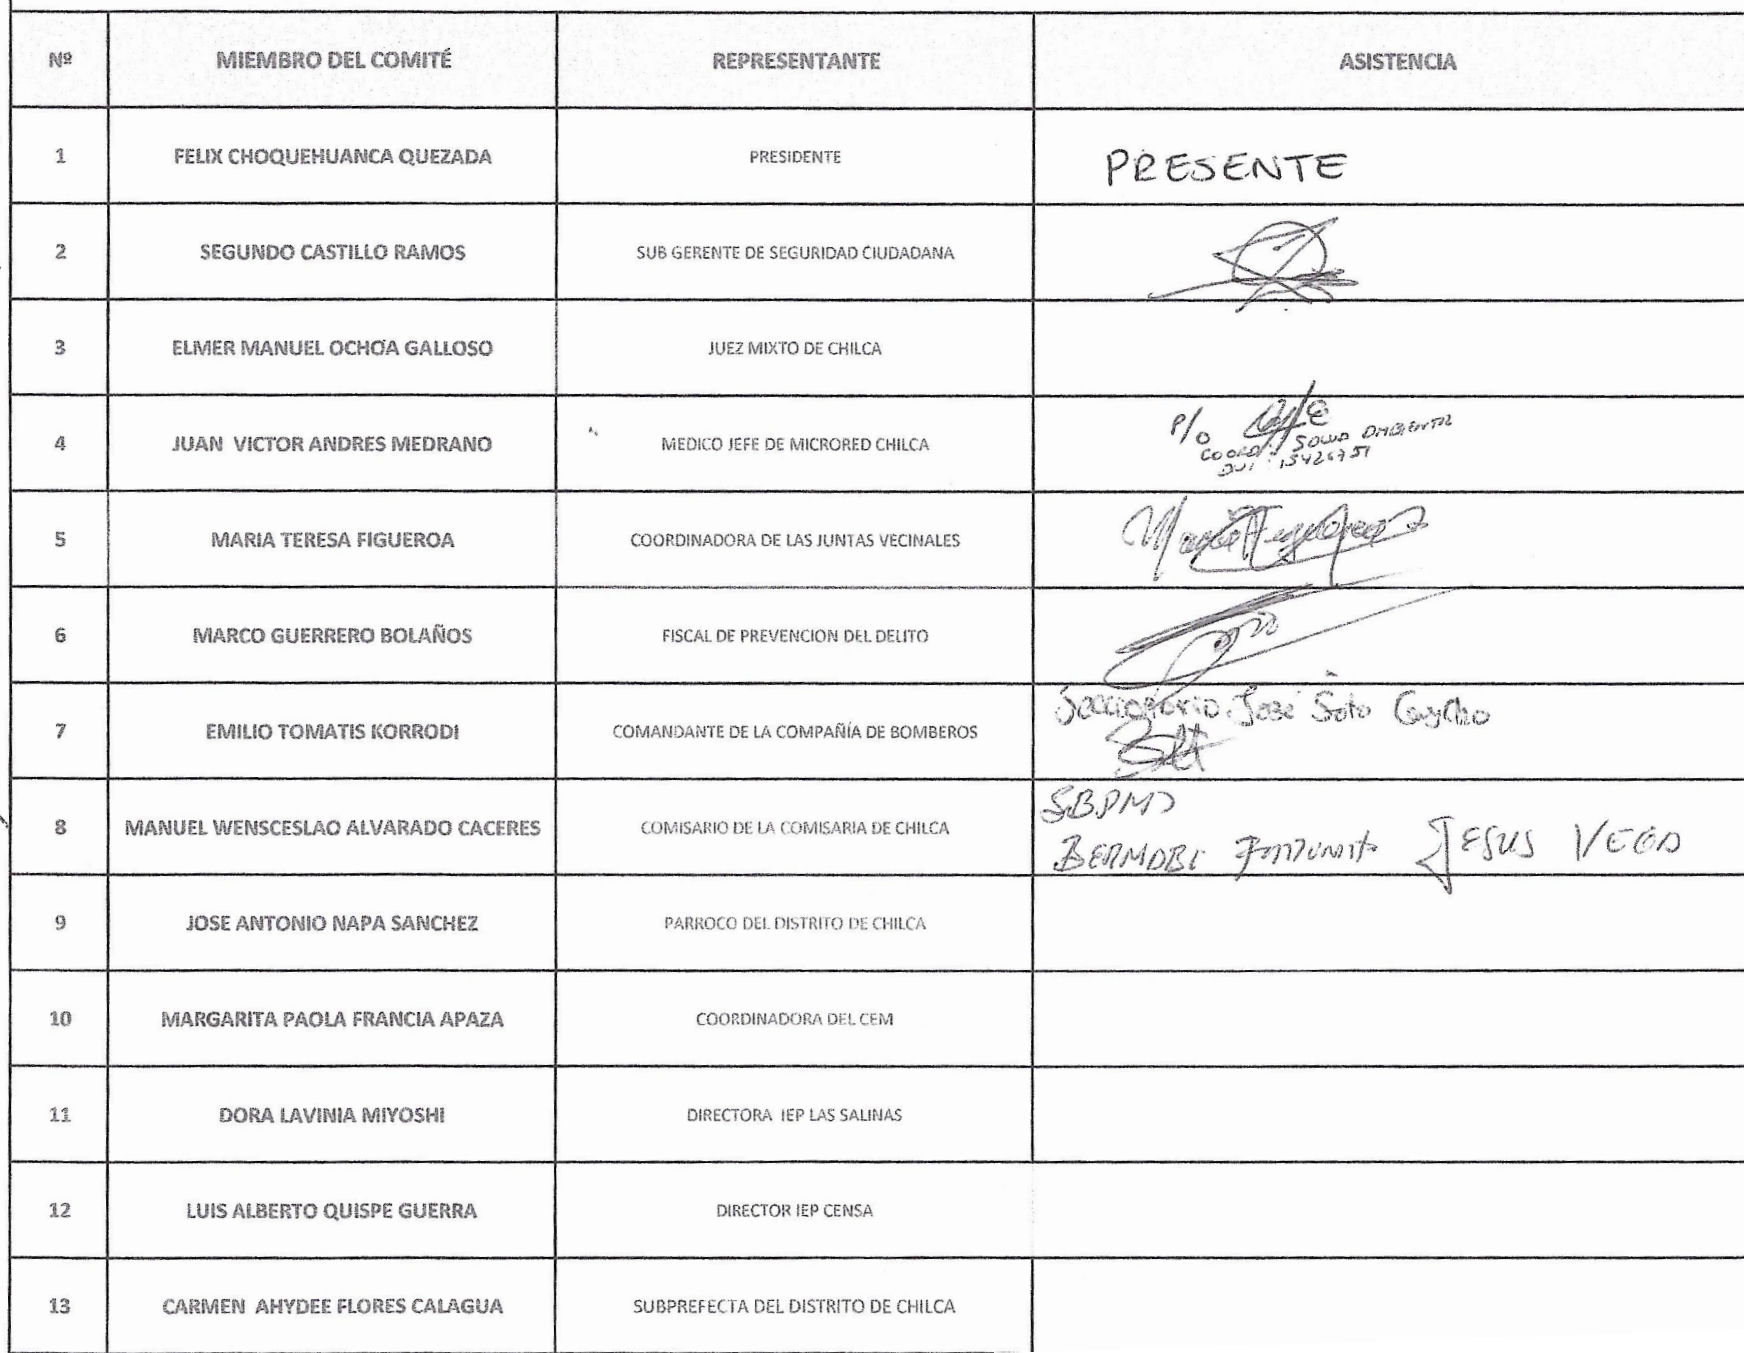 Nº MIEMBRO DEL COMITÉ REPRESENTANTE ASISTENCIA
1 FELIX CHOQUEHUANCA QUEZADA PRESIDENTE PRESENTE
2 SEGUNDO CASTILLO RAMOS SUB GERENTE DE SEGURIDAD CIUDADANA
3 ELMER MANUEL OCHOA GALLOSO JUEZ MIXTO DE CHILCA
4 JUAN VICTOR ANDRES MEDRANO MEDICO JEFE DE MICRORED CHILCA P/O
COORD
5 MARIA TERESA FIGUEROA COORDINADORA DE LAS JUNTAS VECINALES
6 MARCO GUERRERO BOLAÑOS FISCAL DE PREVENCION DEL DELITO
7 EMILIO TOMATIS KORRODI COMANDANTE DE LA COMPAÑÍA DE BOMBEROS José Soto
8 MANUEL WENSCESLAO ALVARADO CACERES COMISARIO DE LA COMISARIA DE CHILCA
JESUS VEGA
9 JOSE ANTONIO NAPA SANCHEZ PARROCO DEL DISTRITO DE CHILCA
10 MARGARITA PAOLA FRANCIA APAZA COORDINADORA DEL CEM
11 DORA LAVINIA MIYOSHI DIRECTORA IEP LAS SALINAS
12 LUIS ALBERTO QUISPE GUERRA DIRECTOR IEP CENSA
13 CARMEN AHYDEE FLORES CALAGUA SUBPREFECTA DEL DISTRITO DE CHILCA